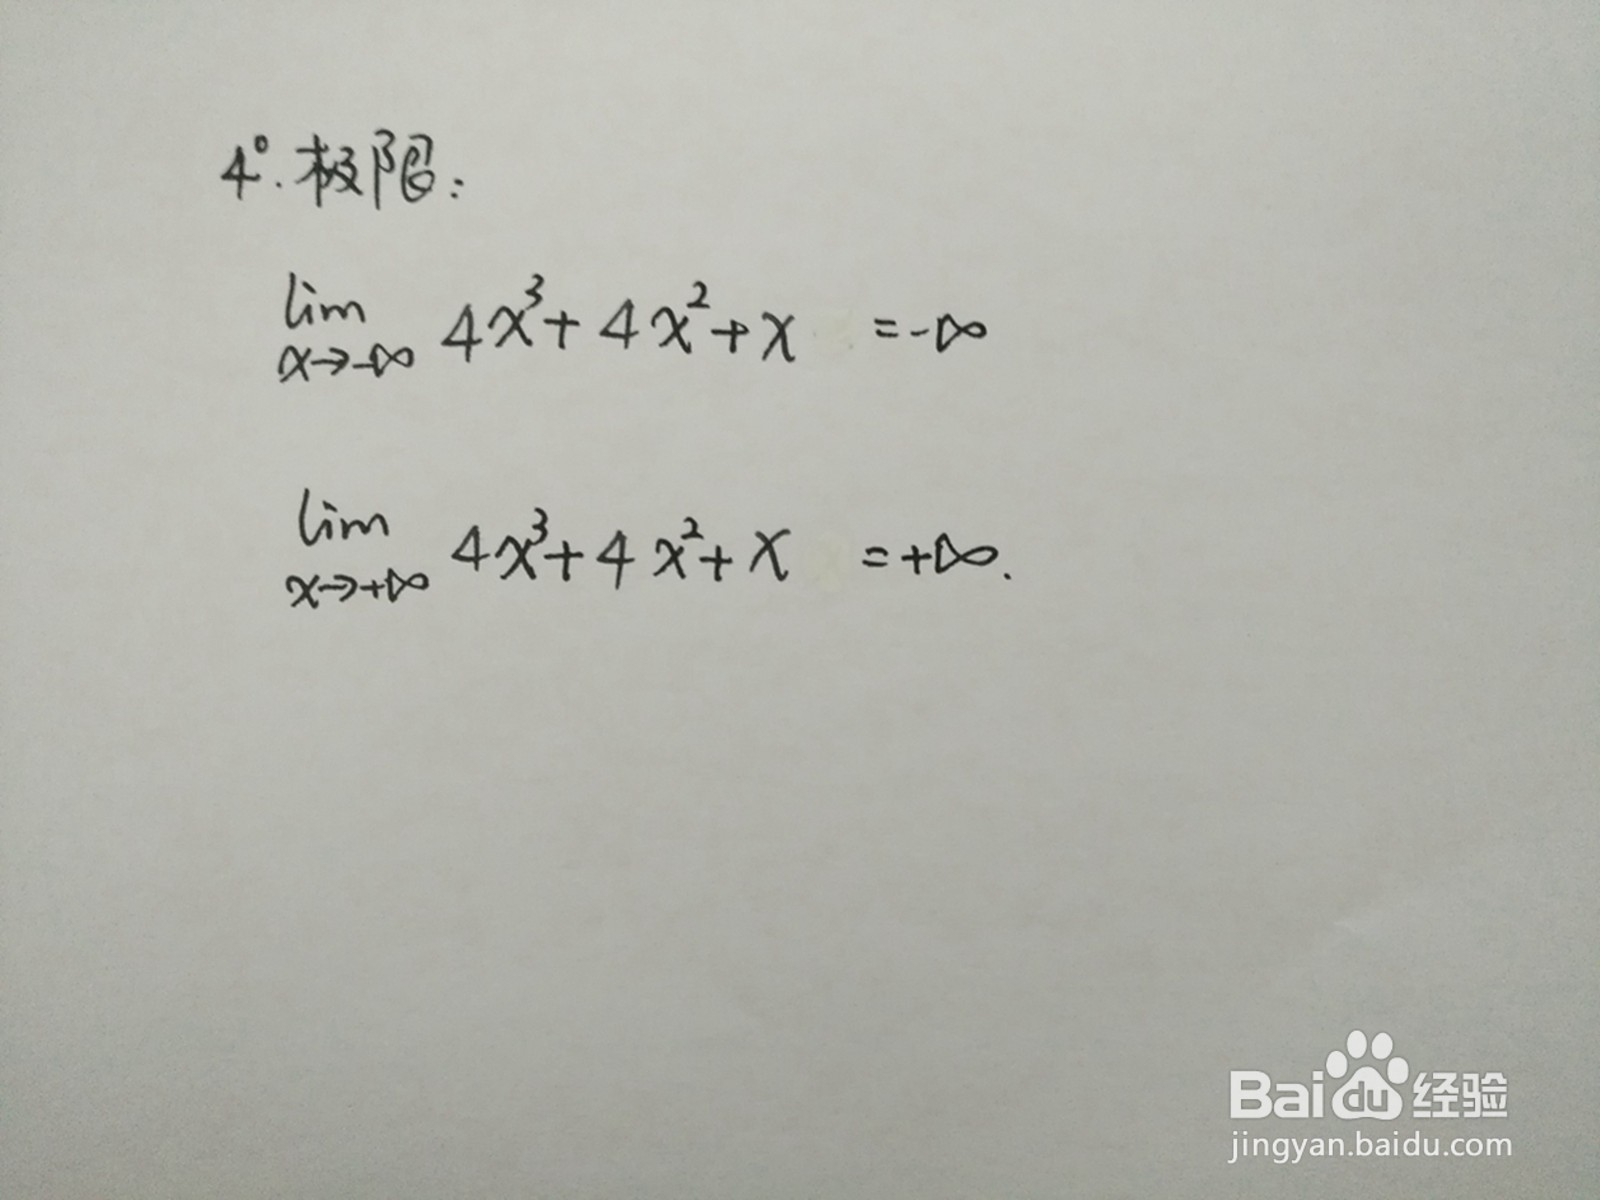 4°. 极限:
lim x→-∞ 4x³+4x²+x =-∞
lim x→+∞ 4x³+4x²+x =+∞.
Bai du 经验
jingyan.baidu.com